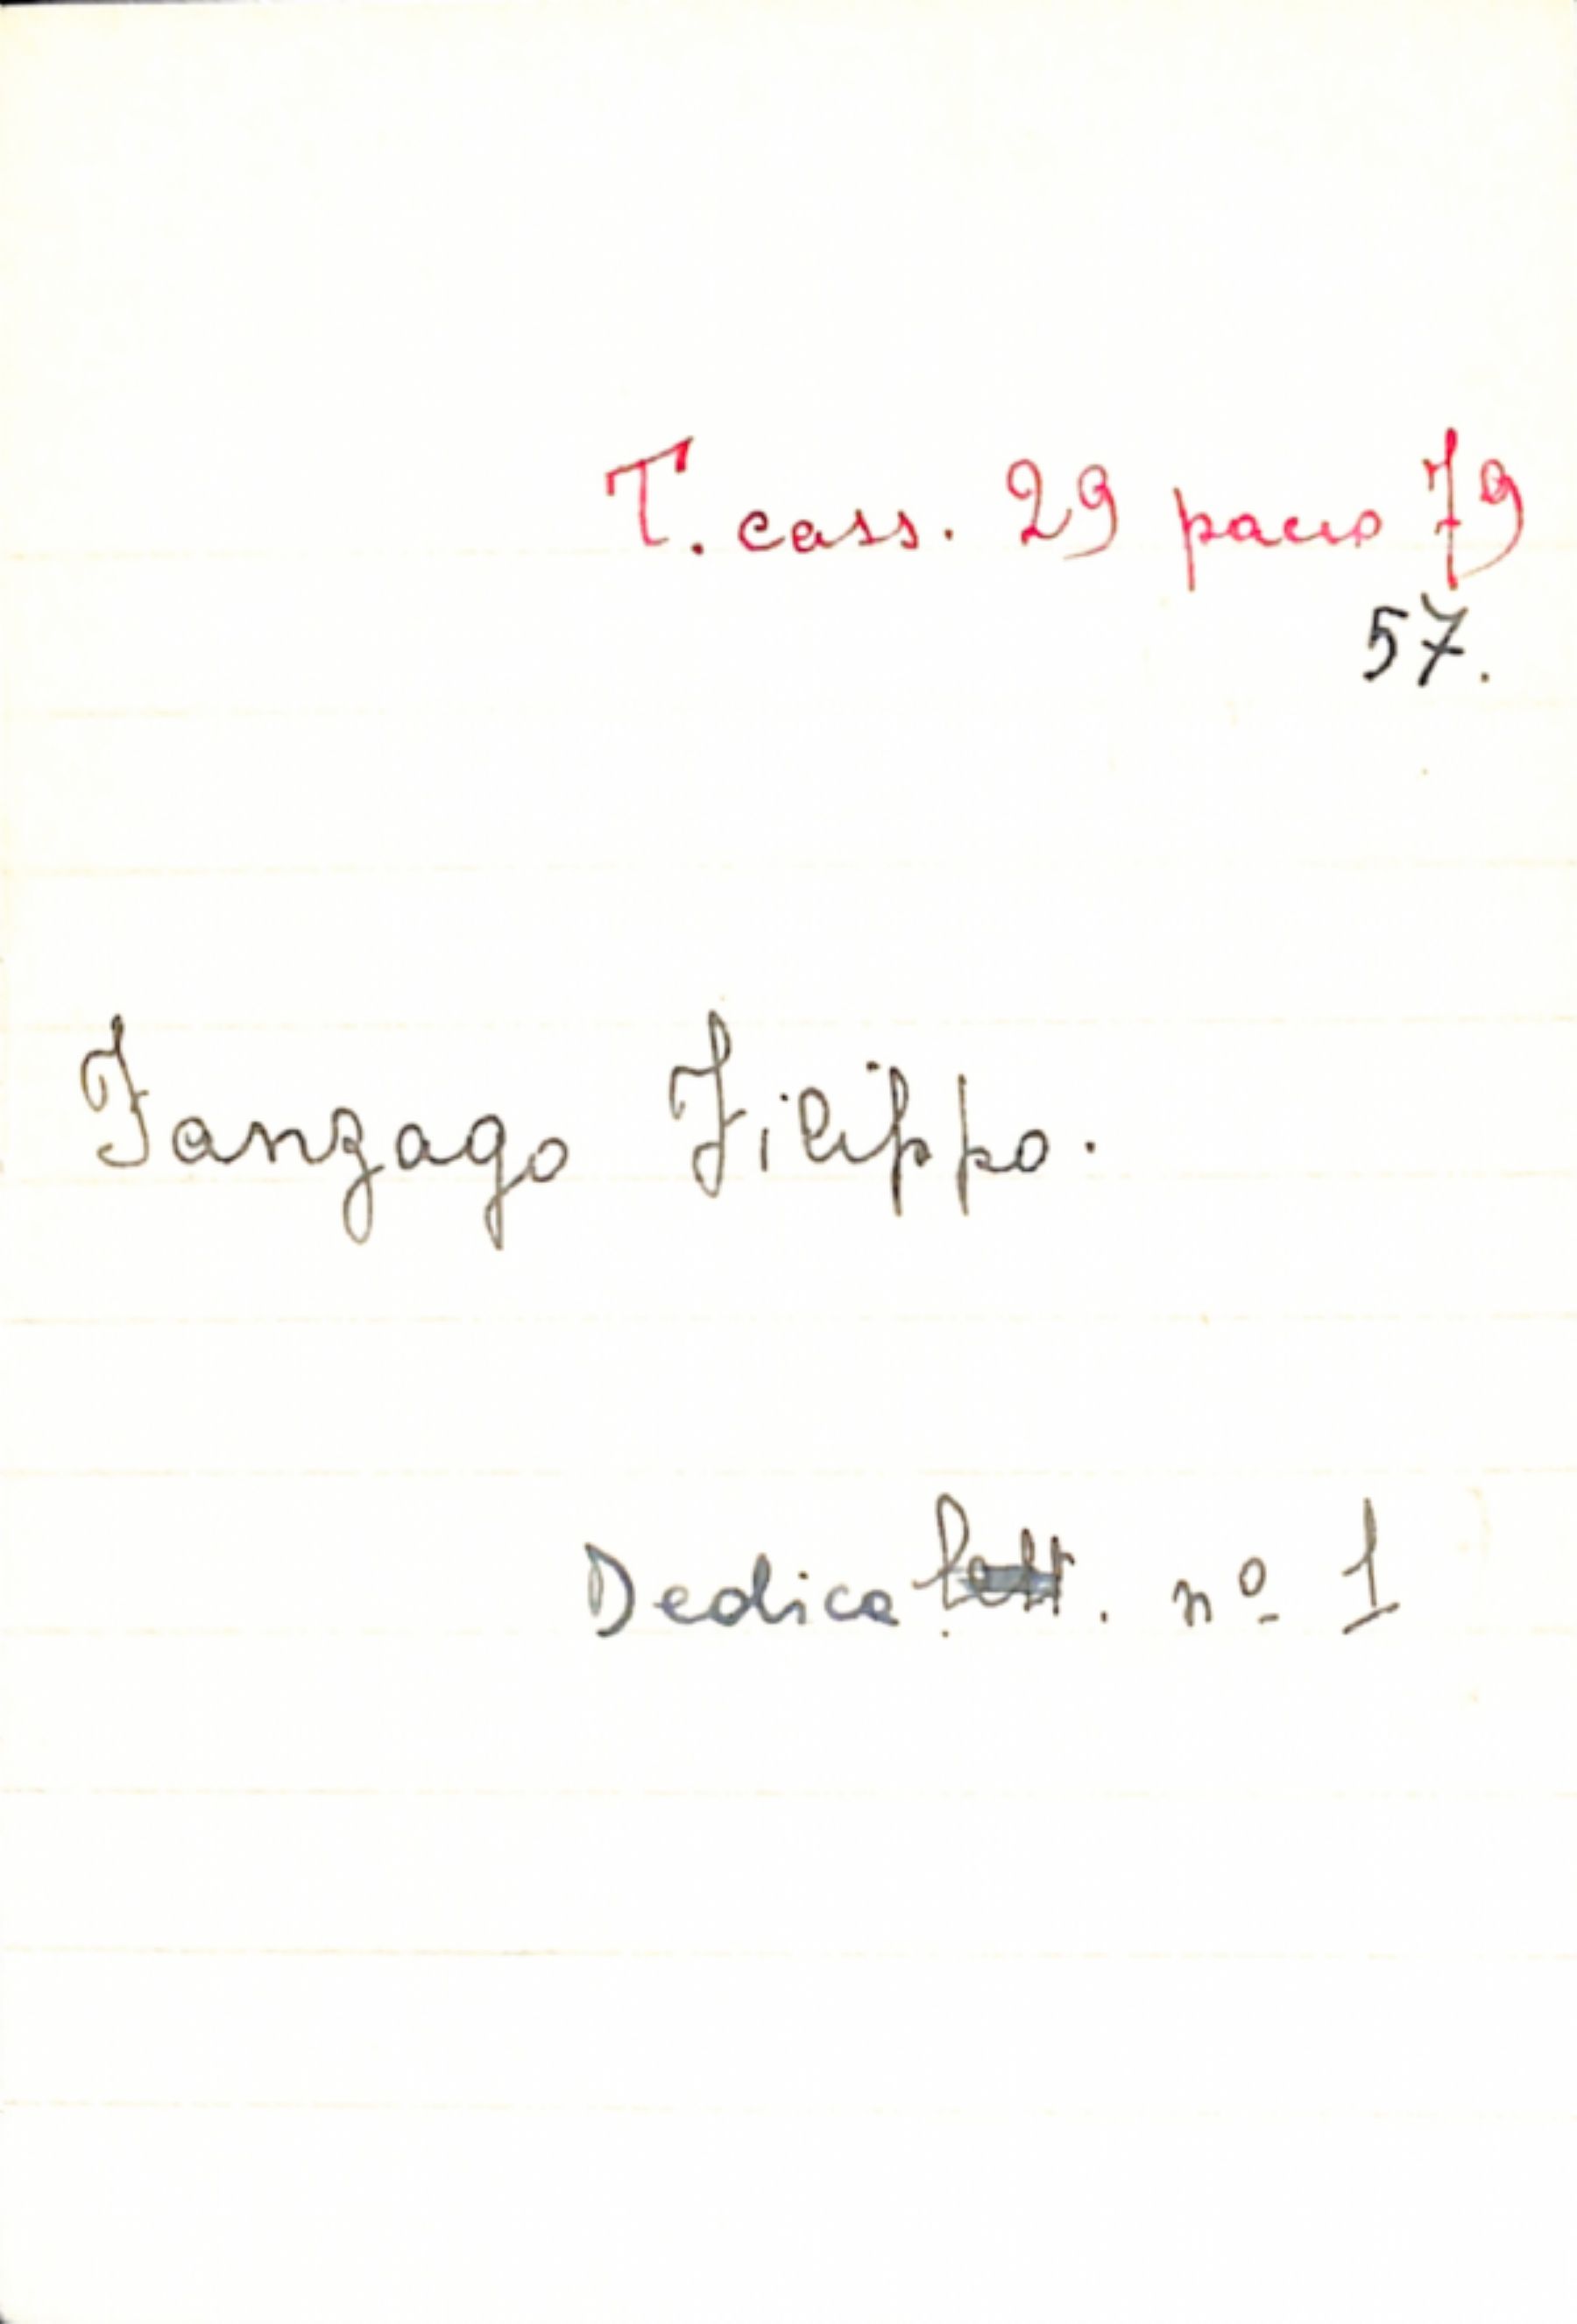 T. cass. 29 pacco 79
57.
Fanzago Filippo.
Dedica lett. nº 1